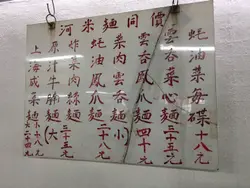 河米麵同價
蚝油菜每碟 十八元
雲吞菜心麵 三十五元
雲吞鳳爪麵 四十元
菜肉雲吞麵(小)
蚝油鳳爪麵 二十八元
炸菜肉絲麵 三十五元
原汁牛腩麵(大)
上海咸菜麵